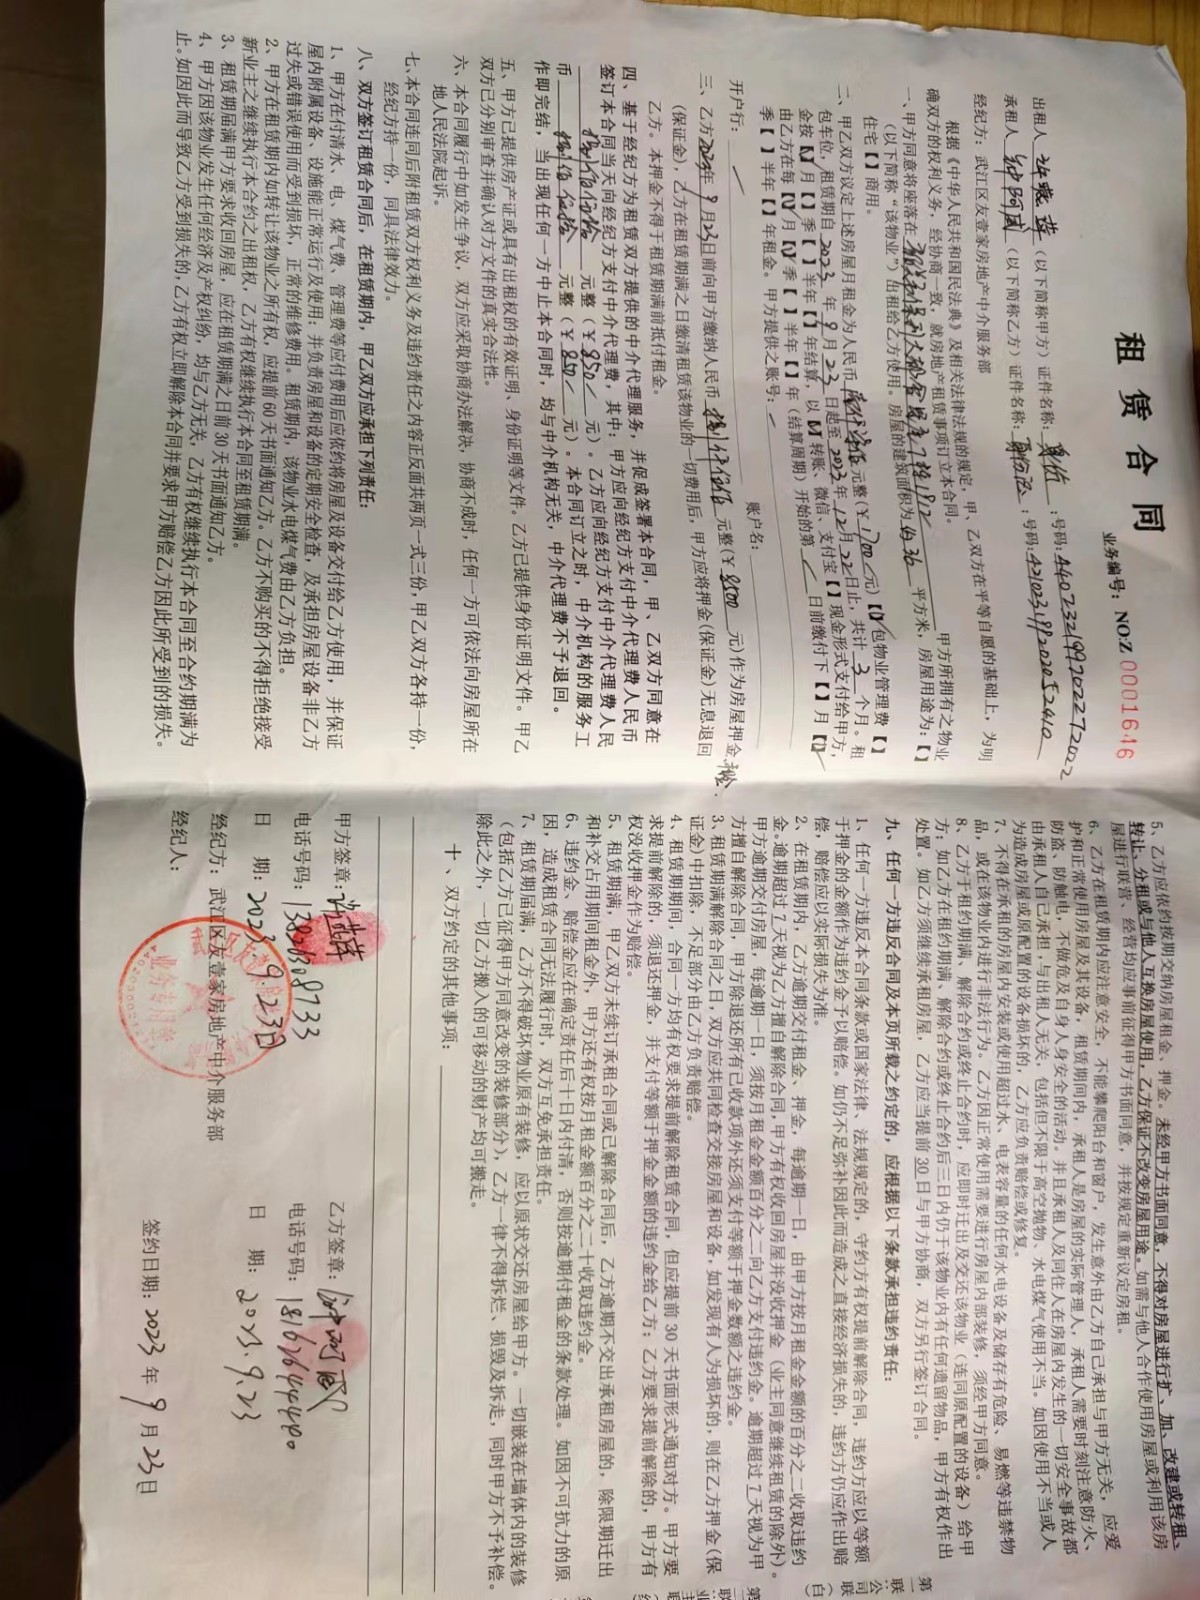 租赁合同
业务编号：NO:Z 0001646
出租人（以下简称甲方）证件名称：：号码：
承租人（以下简称乙方）证件名称：：号码：
经纪方：武江区友壹家房地产中介服务部
根据《中华人民共和国民法典》及相关法律法规的规定，甲、乙双方在平等自愿的基础上，为明
确双方的权利义务，经协商一致，就房地产租赁事项订立本合同。
一、甲方同意将座落在 甲方所拥有之物业
（以下简称“该物业”）出租给乙方使用。房屋的建筑面积为 平方米，房屋用途为：【】
住宅【】商用。
二、甲乙双方议定上述房屋月租金为人民币 元整（￥1700元）【√】包物业管理费【】
包车位，租赁期自2023年9月23日起至2023年12月22日止，共计3个月。租
金按【√】月【】季【】半年【】年结算，以【√】转账、微信、支付宝【】现金形式支付给甲方，
由乙方在每【√】月【】季【】半年【】年（结算周期）开始的第 日前缴付下【】月【】
季【】半年【】年租金。甲方提供之账号：
开户行： 账户名：
三、乙方2023年9月23日前向甲方缴纳人民币 元整（￥ 元）作为房屋押金
（保证金），乙方在租赁期满之日缴清租赁该物业的一切费用后，甲方应将押金（保证金）无息退回
乙方。本押金不得于租赁期满前抵付租金。
四、基于经纪方为租赁双方提供的中介代理服务，并促成签署本合同，甲、乙双方同意在
签订本合同当天向经纪方支付中介代理费，其中：甲方应向经纪方支付中介代理费人民币
捌佰伍拾 元整（￥850 元）。乙方应向经纪方支付中介代理费人民
币 捌佰伍拾 元整（￥850 元）。本合同订立之时，中介机构的服务工
作即完结，当出现任何一方中止本合同时，均与中介机构无关，中介代理费不予退回。
五、甲方已提供房产证或具有出租权的有效证明、身份证明等文件。乙方已提供身份证明文件。甲乙
双方已分别审查并确认对方文件的真实合法性。
六、本合同履行中如发生争议，双方应采取协商办法解决，协商不成时，任何一方可依法向房屋所在
地人民法院起诉。
七、本合同连同后附租赁双方权利义务及违约责任之内容正反面共两页一式三份，甲乙双方各持一份，
经纪方持一份，同具法律效力。
八、双方签订租赁合同后，在租赁期内，甲乙双方应承担下列责任：
1、甲方在付清水、电、煤气费、管理费等应付费用后应依约将房屋及设备交付给乙方使用，并保证
屋内附属设备、设施能正常运行及使用；并负责房屋和设备的定期安全检查，及承担房屋设备非乙方
过失或错误使用而受到损坏，正常的维修费用。租赁期内，该物业水电煤气费由乙方负担。
2、甲方在租赁期内如转让该物业之所有权，应提前60天书面通知乙方。乙方不购买的不得拒绝接受
新业主之继续执行本合约之出租权，乙方有权继续执行本合同至租赁期满。
3、租赁期届满甲方要求收回房屋，应在租赁期满之日前30天书面通知乙方。
4、甲方因该物业发生任何经济及产权纠纷，均与乙方无关，乙方有权继续执行本合同至合约期满为
止。如因此而导致乙方受到损失的，乙方有权立即解除本合同并要求甲方赔偿乙方因此所受到的损失。
5、乙方应依约按期交纳房屋租金，押金。未经甲方书面同意，不得对房屋进行扩、加、改建或转租、
转让、分租或与他人互换房屋使用，乙方保证不改变房屋用途。如需与他人合作使用房屋或利用该房
屋进行联营、经营均应事前征得甲方书面同意，并按规定重新议定房租。
6、乙方在租赁期内应注意安全，不能攀爬阳台和窗户，发生意外由乙方自己承担与甲方无关，应爱
护和正常使用房屋及其设备，租赁期间内，承租人是房屋的实际管理人，承租人需要时刻注意防火、
防盗、防触电，不做危及自身人身安全的活动。并且承租人及同住人在房屋内发生的一切安全事故都
由承租人自己承担，与出租人无关，包括但不限于高空抛物、水电煤气使用不当。如因使用不当或人
为造成房屋或原配置的设备损坏的，乙方应负责赔偿或修复。
7、不得在承租的房屋内安装或使用超过水、电表容量的任何水电设备及储存有危险、易燃等违禁物
品，或在该物业内进行非法行为。乙方因正常使用需要进行房屋内部装修，须经甲方同意。
8、乙方于租约期满，解除合约或终止合约时，应即时迁出及交还该物业（连同原配置的设备）给甲
方；如乙方在租约期满、解除合约或终止合约后三日内仍于该物业内有任何遗留物品，甲方有权作出
处置。如乙方须继续承租房屋，乙方应当提前30日与甲方协商，双方另行签订合同。
九、任何一方违反合同及本页所载之约定的，应根据以下条款承担违约责任：
1、任何一方违反本合同条款或国家法律、法规规定的，守约方有权提前解除合同，违约方应以等额
于押金的金额作为违约金予以赔偿。如仍不足弥补因此而造成之直接经济损失的，违约方仍应作出赔
偿，赔偿应以实际损失为准。
2、在租赁期内，乙方逾期交付租金、押金，每逾期一日，由甲方按月租金金额的百分之二收取违约
金。逾期超过7天视为乙方擅自解除合同，甲方有权收回房屋并没收押金（业主同意继续租赁的除外）。
甲方逾期交付房屋，每逾期一日，须按月租金金额百分之二向乙方支付违约金。逾期超过7天视为甲
方擅自解除合同，甲方除退还所有已收款项外还须支付等额于押金数额之违约金。
3、租赁期满解除合同之日，双方应共同检查交接房屋和设备，如发现有人为损坏的，则在乙方押金（保
证金）中扣除，不足部分由乙方负责赔偿。
4、租赁期间，合同一方均有权要求提前解除租赁合同，但应提前30天书面形式通知对方。甲方要
求提前解除的，须退还押金，并支付等额于押金金额的违约金给乙方；乙方要求提前解除的，甲方有
权没收押金作为赔偿。
5、租赁期满，甲乙双方未续订承租合同或已解除合同后，乙方逾期不交出承租房屋的，除限期迁出
和补交占用期间租金外，甲方还有权按月租金额百分之二十收取违约金。
6、违约金、赔偿金应在确定责任后十日内付清，否则按逾期付租金的条款处理。如因不可抗力的原
因，造成租赁合同无法履行时，双方互免承担责任。
7、租赁期届满，乙方不得破坏物业原有装修，应以原状交还房屋给甲方。一切嵌装在墙体内的装修
（包括乙方已征得甲方同意改变的装修部分），乙方一律不得拆烂、损毁及拆走，同时甲方不予补偿。
除此之外，一切乙方搬入的可移动的财产均可搬走。
十、双方约定的其他事项：
甲方签章： 乙方签章：
电话号码： 电话号码：
日 期：2023.9.23日 日 期：2023.9.23
经纪方：武江区友壹家房地产中介服务部
经纪人： 签约日期：2023年9月23日
业务专用章